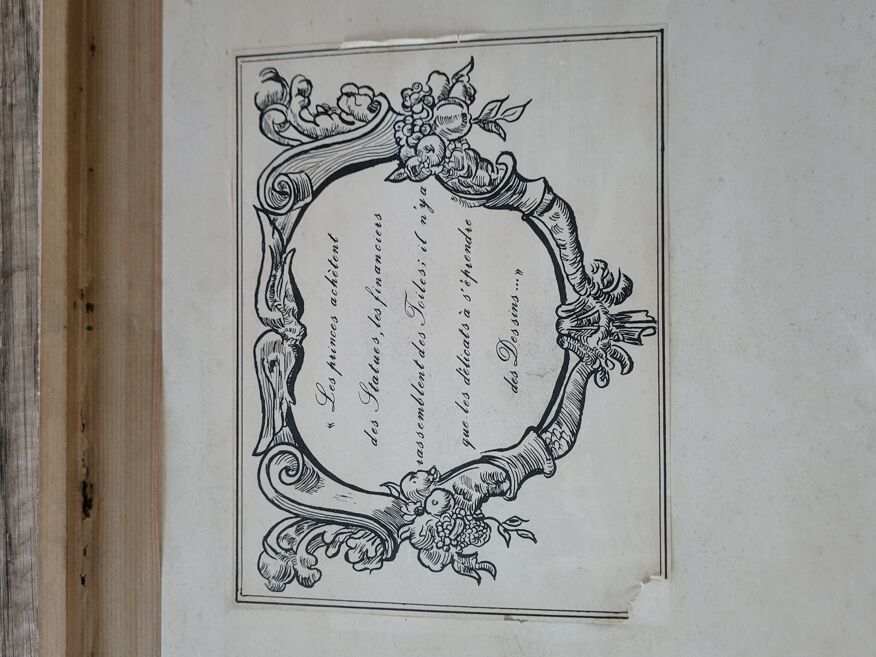 « Les princes achètent
des Statues, les financiers
rassemblent des Toiles; il n'y a
que les délicats à s'éprendre
des Dessins...»